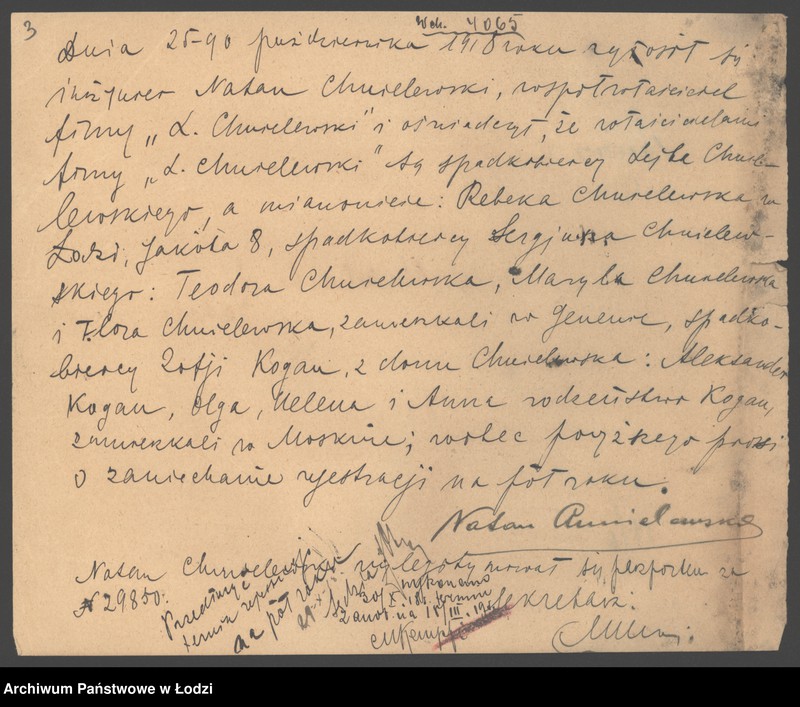 3
Wch. 4065
Dnia 25-go października 1918 roku zgłosił się
inżynier Natan Chmielewski, współwłaściciel
firmy „L. Chmielewski" i oświadczył, że właścicielami
firmy „L. Chmielewski" są spadkobiercy Lejba Chmie-
lewskiego, a mianowicie: Rebeka Chmielewska w
Łodzi, Jakóba 8, spadkobiercy Sergjusza Chmielew-
skiego: Teodora Chmielewska, Maryla Chmielewska
i Flora Chmielewska, zamieszkali w Genewie, spadko-
biercy Zofji Kogan, z domu Chmielewska: Aleksander
Kogan, Olga, Helena i Anna rodzeństwo Kogan,
zamieszkali w Moskwie; wobec powyższego prosi
o zaniechanie rejestracji na pół roku.
Natan Chmielewski
Natan Chmielewski wylegitymował się paszportem za
N 29850.
Sekretarz:
Przedłużyć
termin rejestracji
na pół roku
Sędzia
wykonano
30/X 18. termin
zanot. na 15/III. 19
Archiwum Państwowe w Łodzi